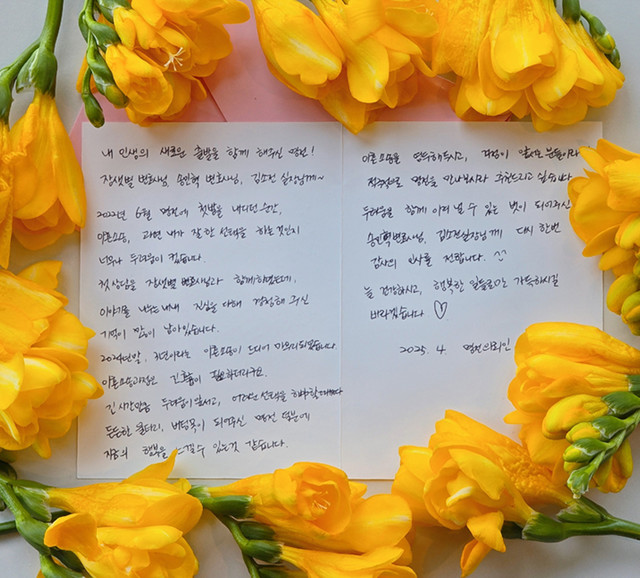 내 인생의 새로운 출발을 함께 해주신 명전!
장샛별 변호사님, 송인혁 변호사님, 김소진 실장님께~
2022년 6월 명전에 첫발을 내디던 순간,
이혼소송, 과연 내가 잘 한 선택을 하는것인지
너무나 두려움이 컸습니다.
첫 상담을 장샛별 변호사님과 함께하였는데,
이야기를 나누는 내내 진심을 다해 걱정해 주신
기억이 많이 남아있습니다.
2024년말, 이혼소송이 드디어 마무리되었습니다
이혼소송과정은 긴 필요하더라구요.
긴 시간만큼 두려움이 앞서고, 어려운 선택을 해야할때마다
든든한 울타리, 버팀목이 되어주신 명전 덕분에
지금의 행복을 느낄수 있는것 같습니다.
이혼소송을 염두해두시고, 걱정이 앞서는 분들이라면
적극적으로 명전을 만나보시라 추천드리고 싶습니다
두려움을 함께 이겨 낼 수 있는 벗이 되어주신
송인혁변호사님, 김소진실장님께 다시 한번
감사의 인사를 전합니다. ^^
늘 건강하시고, 행복한 일들로만 가득하시길
바라겠습니다 ♡
2025. 4. 명전의뢰인